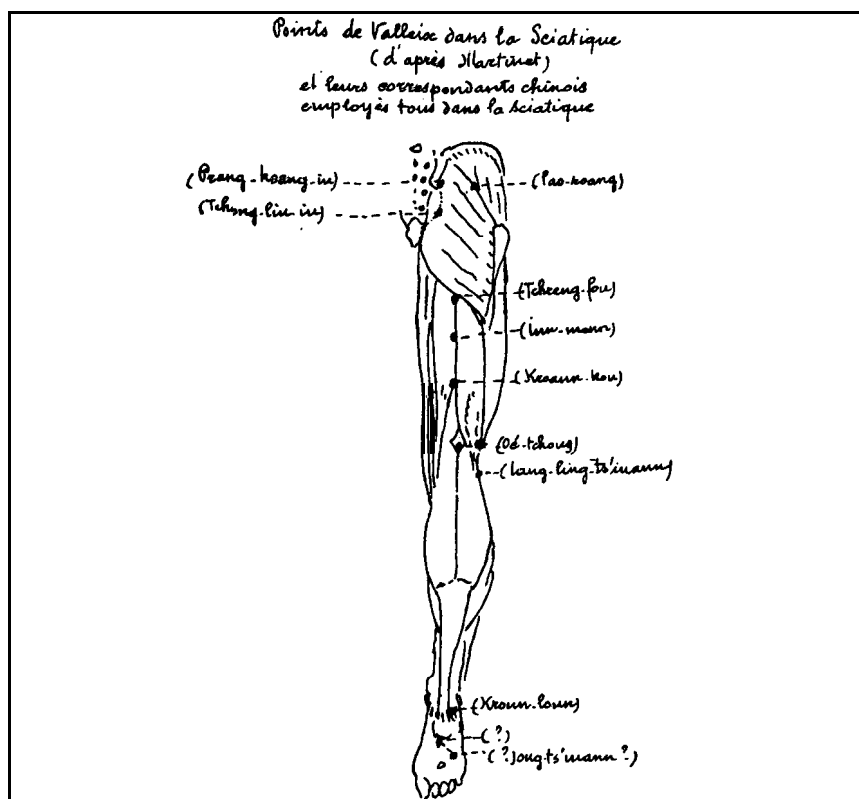 Points de Valleix dans la Sciatique
(d'après Martinet)
et leurs correspondants chinois
employés tous dans la sciatique
(Prang-koang-iu)
(Pao-koang)
(Tchong-liu-iu)
(Tchreng-fou)
(Inn-menn)
(Kroann-kou)
(Oé-tchong)
(Iang-ling-ts'iuann)
(Kroun-loun)
(?)
(?)ong-ts'iuann?)